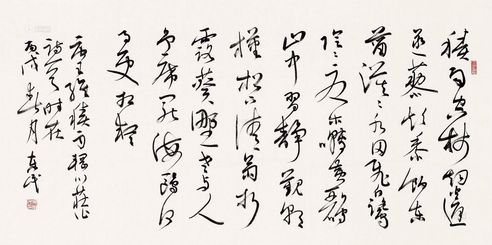 積雨空林烟火遲
蒸藜炊黍餉東
菑漠漠水田飛白鷺
陰陰夏木囀黃鸝
山中習靜觀朝
槿松下清齋折
露葵野老與人
爭席罷海鷗何
事更相疑
唐王維積雨輞川莊作
詩一首時在
丙戌春月